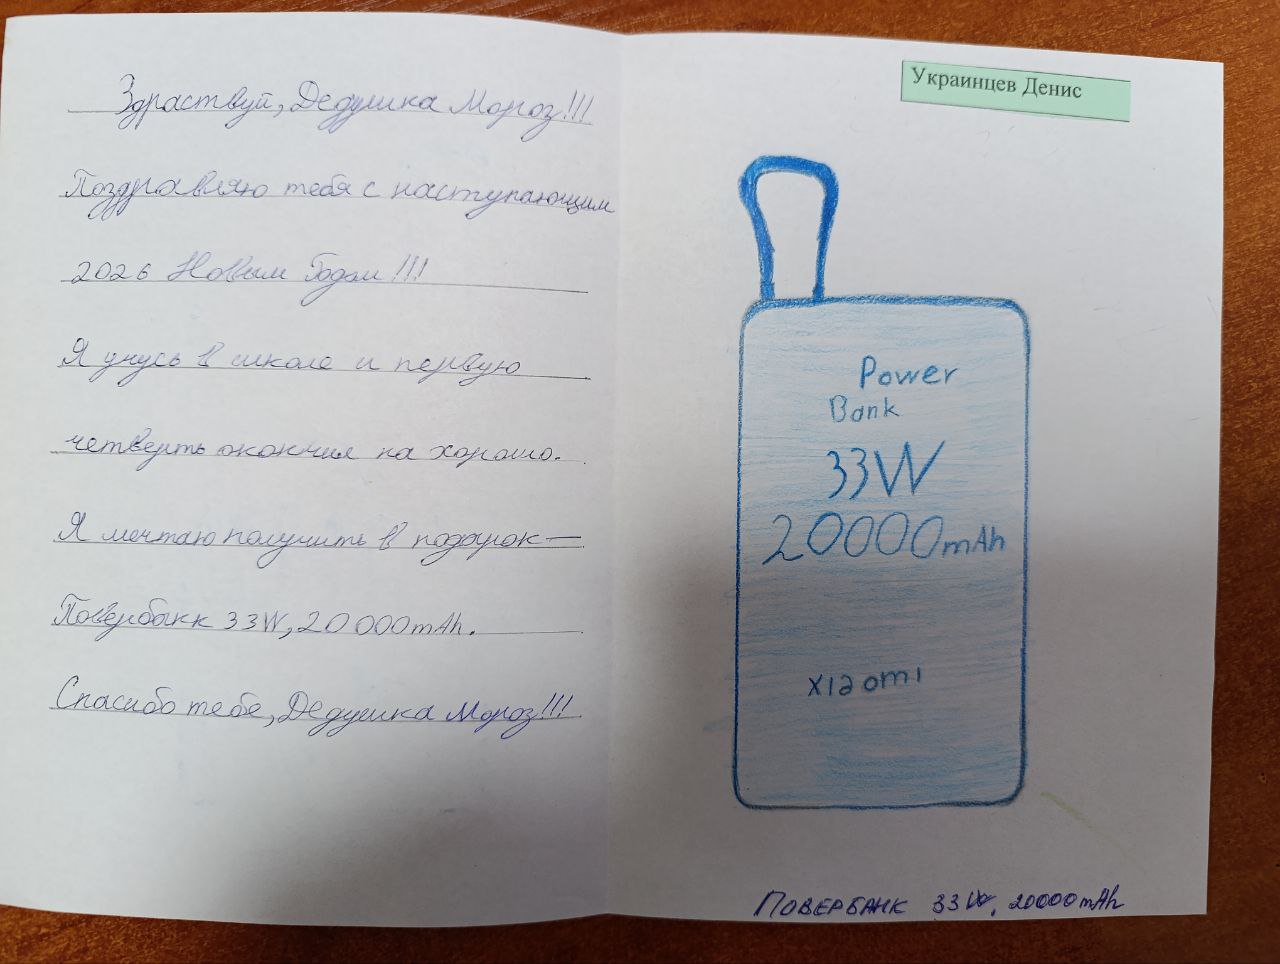 Здраствуй, Дедушка Мороз!!!
Поздравляю тебя с наступающим
2026 Новым Годом!!!
Я учусь в школе и первую
четверть окончил на хорошо.
Я мечтаю получить в подарок —
Повербанк 33W, 20000mAh.
Спасибо тебе, Дедушка Мороз!!!
Украинцев Денис
Power
Bank
33W
20000mAh
xiaomi
ПОВЕРБАНК 33W, 20000mAh